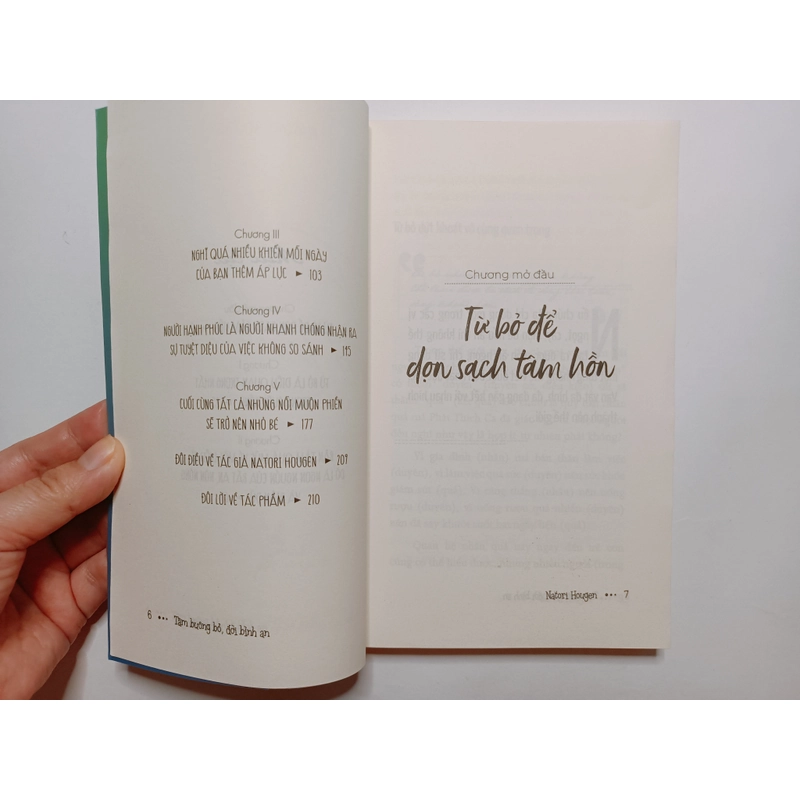 Chương III
NGHĨ QUÁ NHIỀU KHIẾN MỖI NGÀY
CỦA BẠN THÊM ÁP LỰC ► 103
Chương IV
NGƯỜI HẠNH PHÚC LÀ NGƯỜI NHANH CHÓNG NHẬN RA
SỰ TUYỆT DIỆU CỦA VIỆC KHÔNG SO SÁNH ► 145
Chương V
CUỐI CÙNG TẤT CẢ NHỮNG NỖI MUỘN PHIỀN
SẼ TRỞ NÊN NHỎ BÉ ► 177
ĐÔI ĐIỀU VỀ TÁC GIẢ NATORI HOUGEN ► 209
ĐÔI LỜI VỀ TÁC PHẨM ► 210
6 ••• Tâm buông bỏ, đời bình an
Chương mở đầu
Từ bỏ để
dọn sạch tâm hồn
Natori Hougen ••• 7